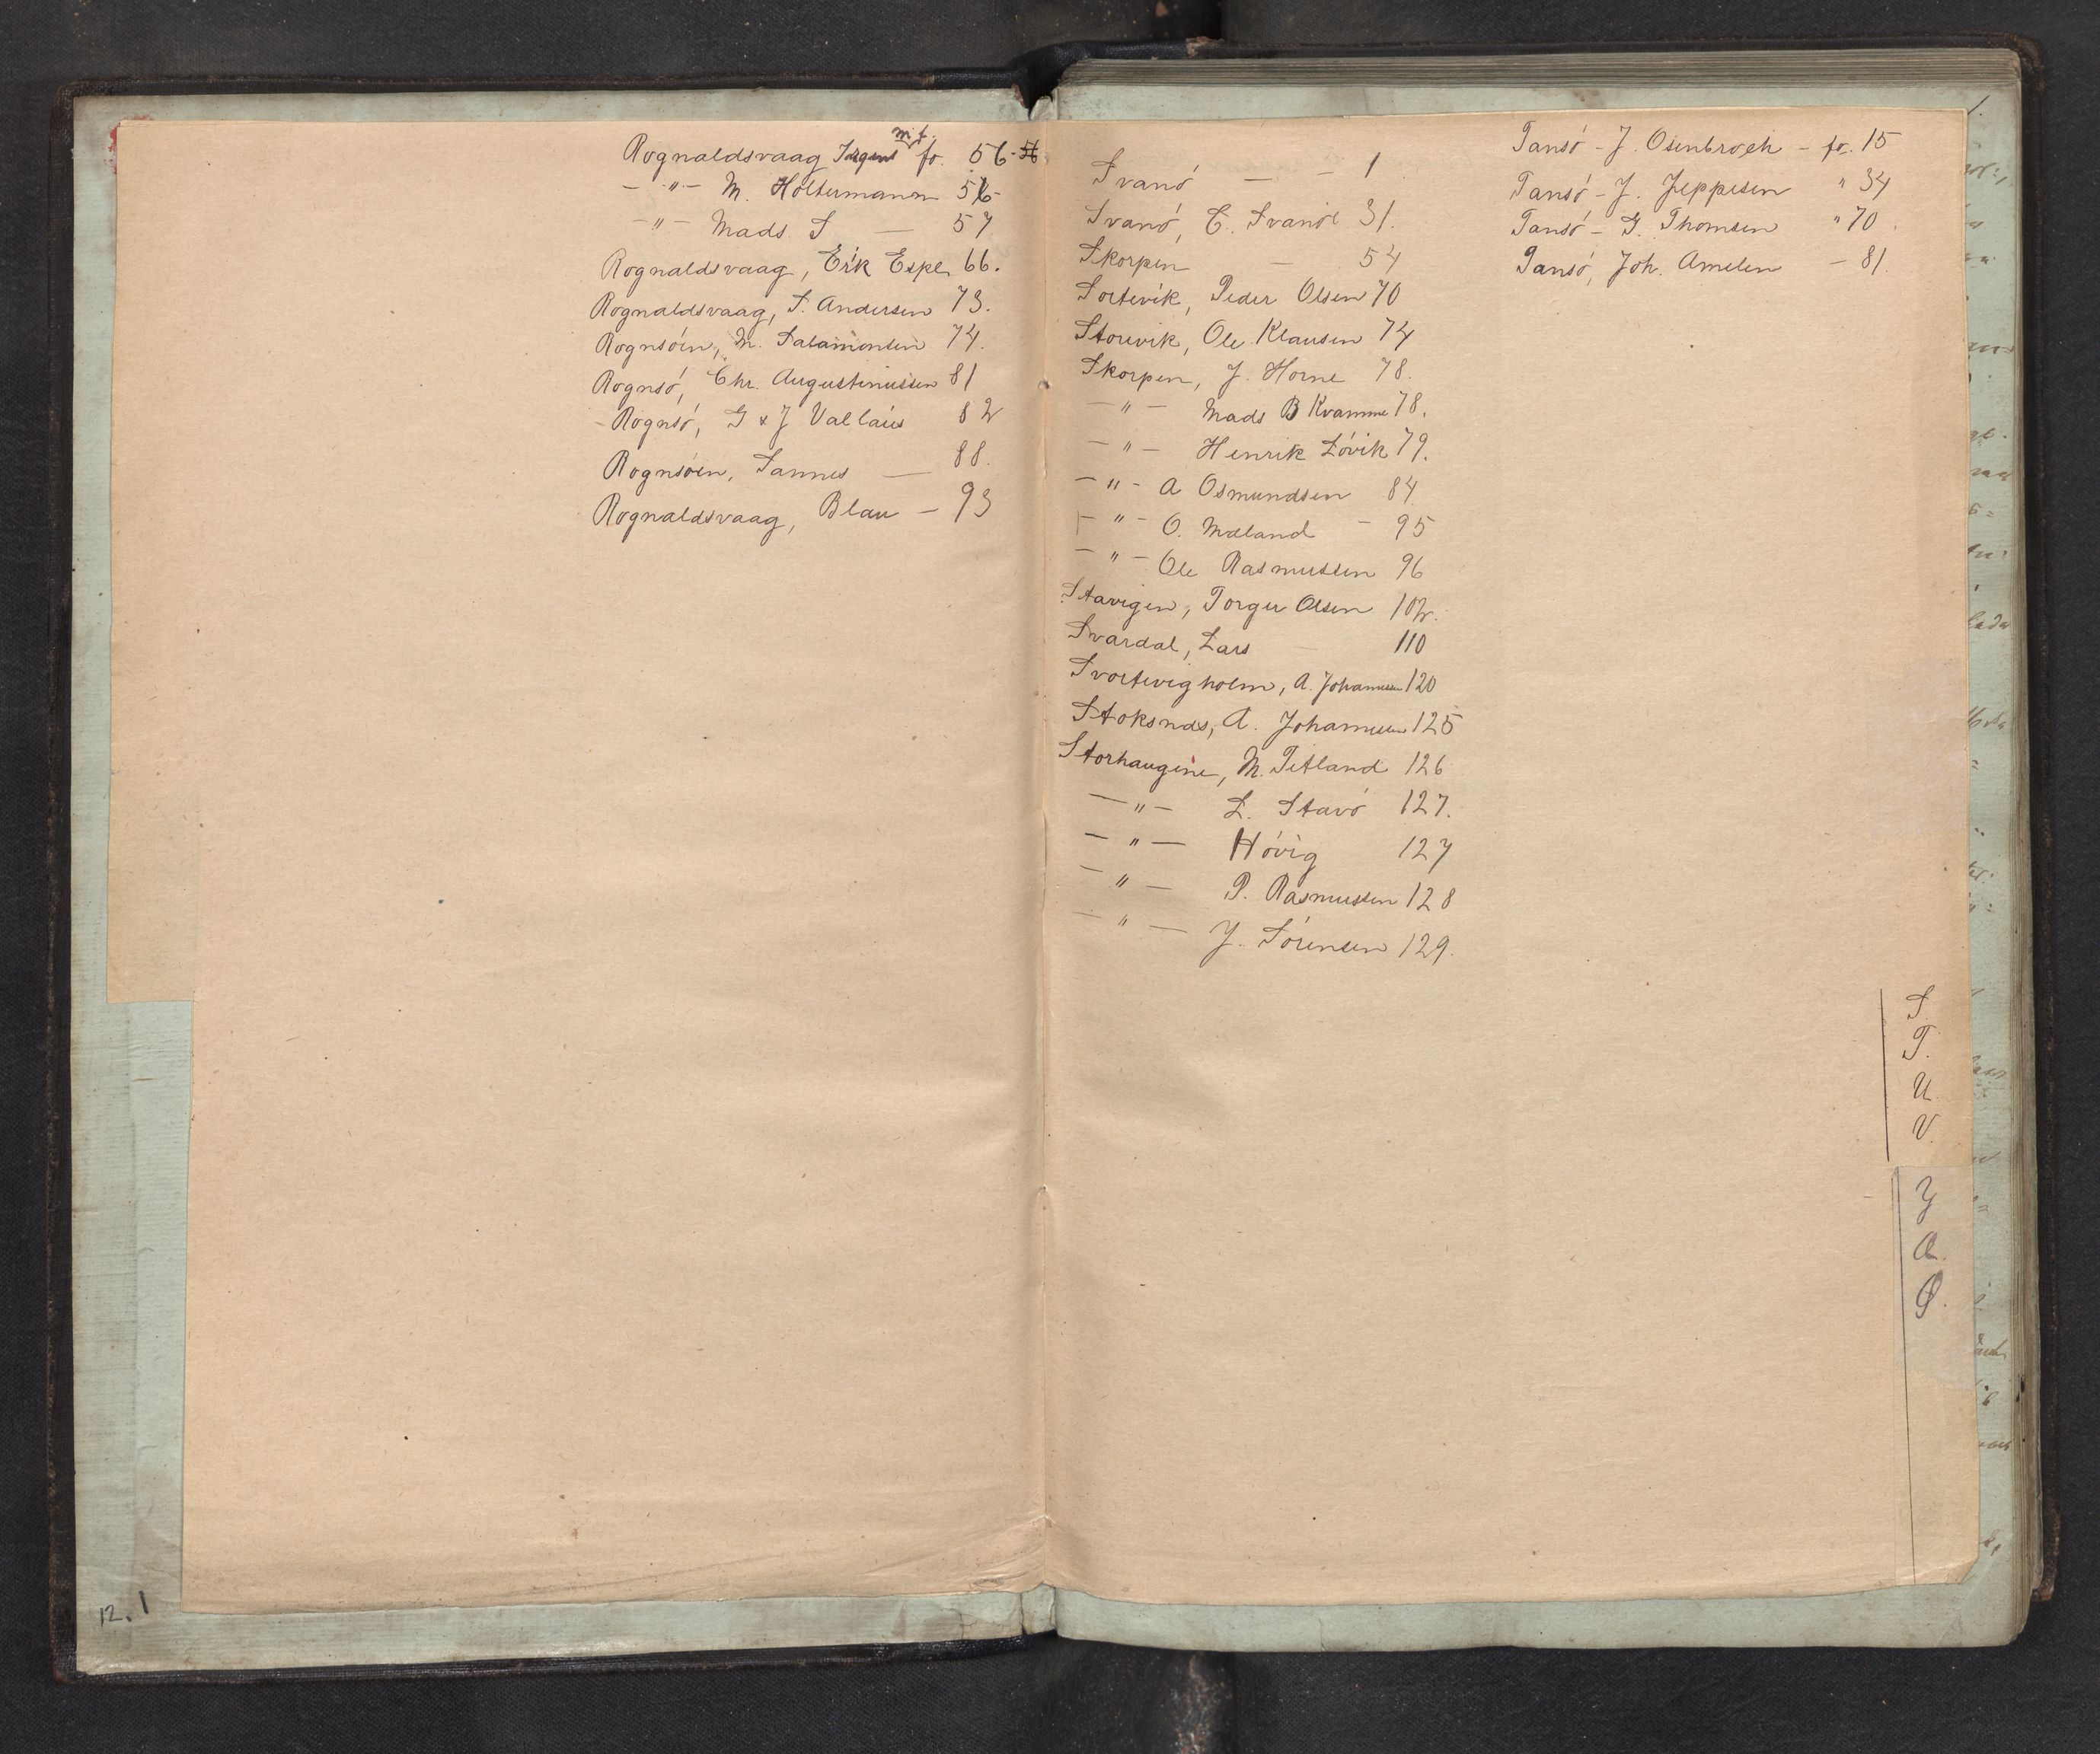 m. f.
Rognaldsvaag fo. 56.
— " — M. Holtermann 56
— " — Mads S — 57
Rognaldsvaag, Erik Espe, 66.
Rognaldsvaag, S. Andersen 73.
Rognsöen, M. Salamonsen 74.
Rognsö, Chr. Augustinussen 81
- Rognsö, G & J Vallais 82
Rognsöen, Sannes — 88.
Rognaldsvaag, Blau — 93
Svanö — - 1
Svanö, C. Svanöe 31.
Skorpen — 54
Sortevik, Peder Olsen 70
Storevik, Ole Klausen 74
Skorpen, J. Horne 78.
— " — Mads B Kvamme 78.
— " — Henrik Lövik 79.
— " — A Osmundsen 84
— " — O. Mæland — 95
— " — Ole Rasmussen 96
Stavigen, Torger Olsen 102.
Svardal, Lars — 110
Svortevigholm, A. Johannessen 120
Stoksnæs, A. Johannessen 125
Storhaugene, M. Tetland 126
— " — L. Stavö 127.
— " — Hövig 127
— " — P. Rasmussen 128
— " — J. Sörensen 129.
Tansö - J. Osenbroch - fo. 15
Tansö - J. Jeppesen " 34
Tansö - G. Thomsen " 70.
Tansö, Joh. Amelen — 81.
S.
T.
U.
V.
Y
Æ.
Ø.
12.1
1.